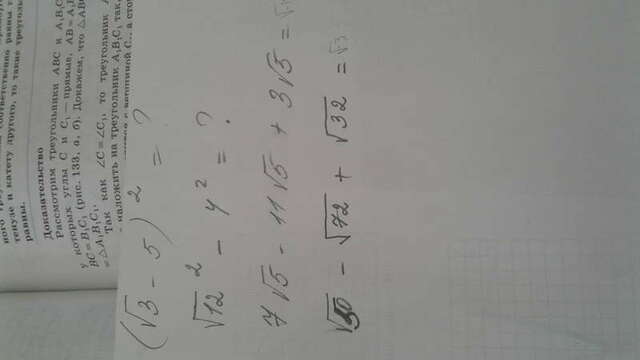 ного
соответственно равны
тенузе и катету другого, то такие треуголь
равны.
Доказательство
Рассмотрим треугольники ABC и A₁B₁C
у которых углы C и C₁ — прямые, AB = A₁
BC = B₁C₁ (рис. 133, а, б). Докажем, что △AB
= △A₁B₁C₁.
Так как ∠C = ∠C₁, то треугольник
наложить на треугольник A₁B₁C₁ так,
(√3 - 5)² = ?
√12² - y² = ?
7√5 - 11√5 + 3√5 = √
√50 - √72 + √32 = √3